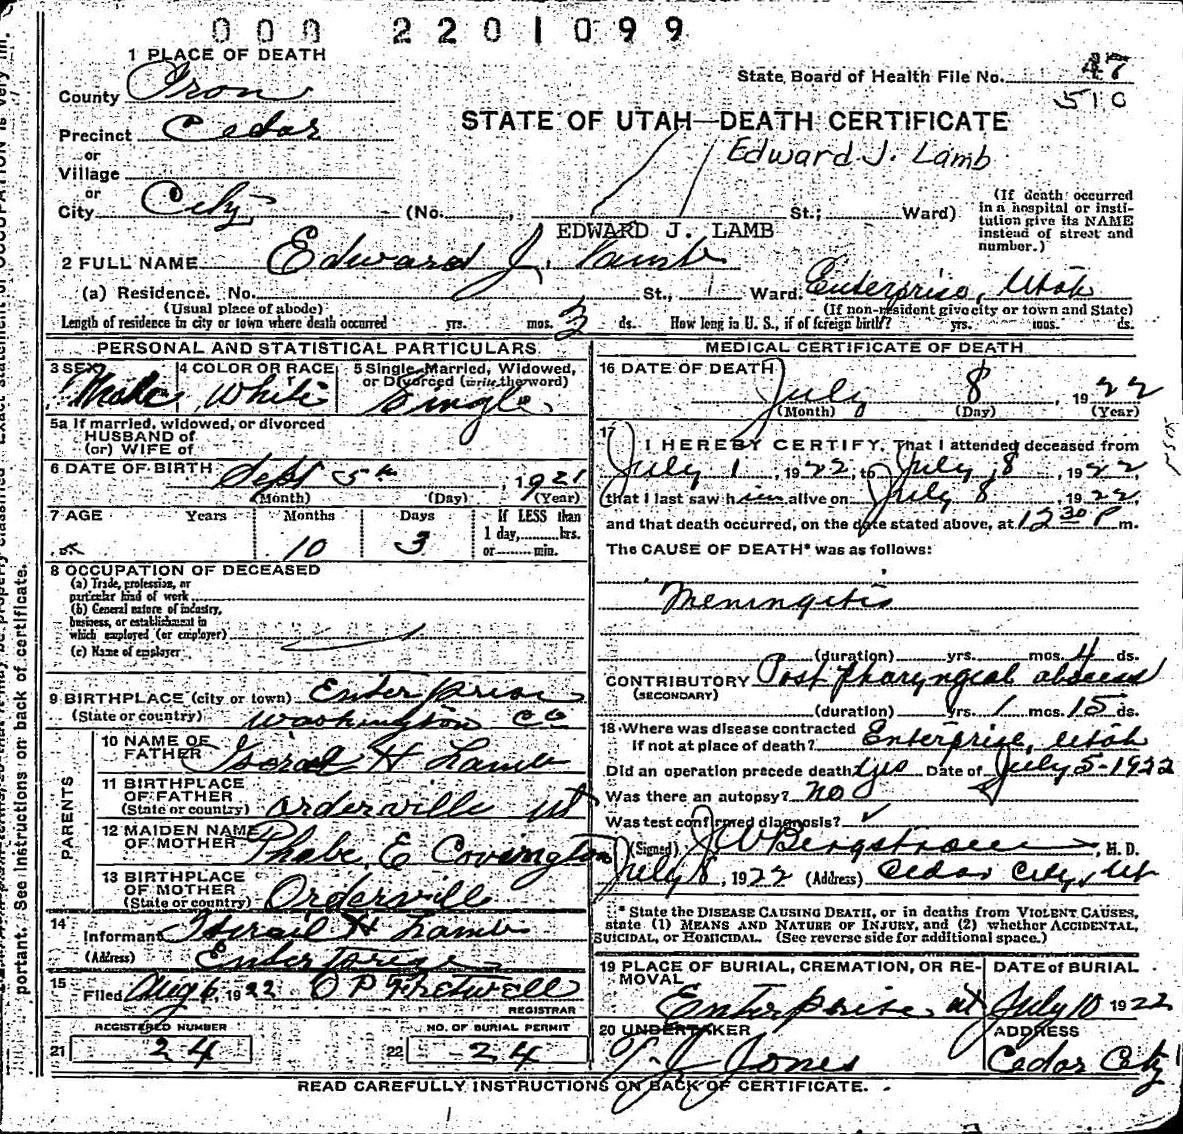 000 2201099
1 PLACE OF DEATH
State Board of Health File No. 47
County Iron
510
Precinct Cedar
STATE OF UTAH—DEATH CERTIFICATE
or
Village
Edward J. Lamb
or
City City (No. , St.; Ward)
(If death occurred in a hospital or institution give its NAME instead of street and number.)
EDWARD J. LAMB
2 FULL NAME Edward J. Lamb
(a) Residence. No. St., Ward. Enterprise, Utah
(Usual place of abode) (If non-resident give city or town and State)
Length of residence in city or town where death occurred yrs. mos. 3 ds. How long in U. S., if of foreign birth? yrs. mos. ds.
PERSONAL AND STATISTICAL PARTICULARS
3 SEX Male
4 COLOR OR RACE White
5 Single, Married, Widowed, or Divorced (write the word) Single
5a If married, widowed, or divorced
HUSBAND of
(or) WIFE of
6 DATE OF BIRTH Sept 5th, 1921
(Month) (Day) (Year)
7 AGE Years Months Days If LESS than
1 day, hrs.
10 3 or min.
8 OCCUPATION OF DECEASED
(a) Trade, profession, or
particular kind of work
(b) General nature of industry,
business, or establishment in
which employed (or employer)
(c) Name of employer
9 BIRTHPLACE (city or town) Enterprise
(State or country) Washington Co
PARENTS
10 NAME OF FATHER Iserael H Lamb
11 BIRTHPLACE OF FATHER (State or country) Orderville Ut
12 MAIDEN NAME OF MOTHER Phebe E Covington
13 BIRTHPLACE OF MOTHER (State or country) Orderville
14 Informant Iserail H Lamb
(Address) Enterprise
15 Filed Aug 6, 1922 O P Fretwell
REGISTRAR
REGISTERED NUMBER NO. OF BURIAL PERMIT
21 24 22 24
MEDICAL CERTIFICATE OF DEATH
16 DATE OF DEATH
July 8, 1922
(Month) (Day) (Year)
17 I HEREBY CERTIFY, That I attended deceased from
July 1, 1922, to July 8, 1922,
(that I last saw him alive on July 8 1922,
and that death occurred, on the date stated above, at 12 30 P m.
The CAUSE OF DEATH* was as follows:
Meningitis
(duration) yrs. mos. 4 ds.
CONTRIBUTORY Post pharyngeal abscess
(SECONDARY)
(duration) yrs. 1 mos. 15 ds.
18 Where was disease contracted
If not at place of death? Enterprise, Utah
Did an operation precede death yes Date of July 5-1922
Was there an autopsy? no
Was test confirmed diagnosis? ✓
(Signed) J W Bergstrom, M. D.
July 8, 1922 (Address) Cedar City, Ut
* State the DISEASE CAUSING DEATH, or in deaths from VIOLENT CAUSES,
state (1) MEANS AND NATURE OF INJURY, and (2) whether ACCIDENTAL,
SUICIDAL, or HOMICIDAL. (See reverse side for additional space.)
19 PLACE OF BURIAL, CREMATION, OR REMOVAL
Enterprise, ut
DATE of BURIAL
July 10 1922
20 UNDERTAKER
T. J. Jones
ADDRESS
Cedar City
READ CAREFULLY INSTRUCTIONS ON BACK OF CERTIFICATE.
portant. See instructions on back of certificate.